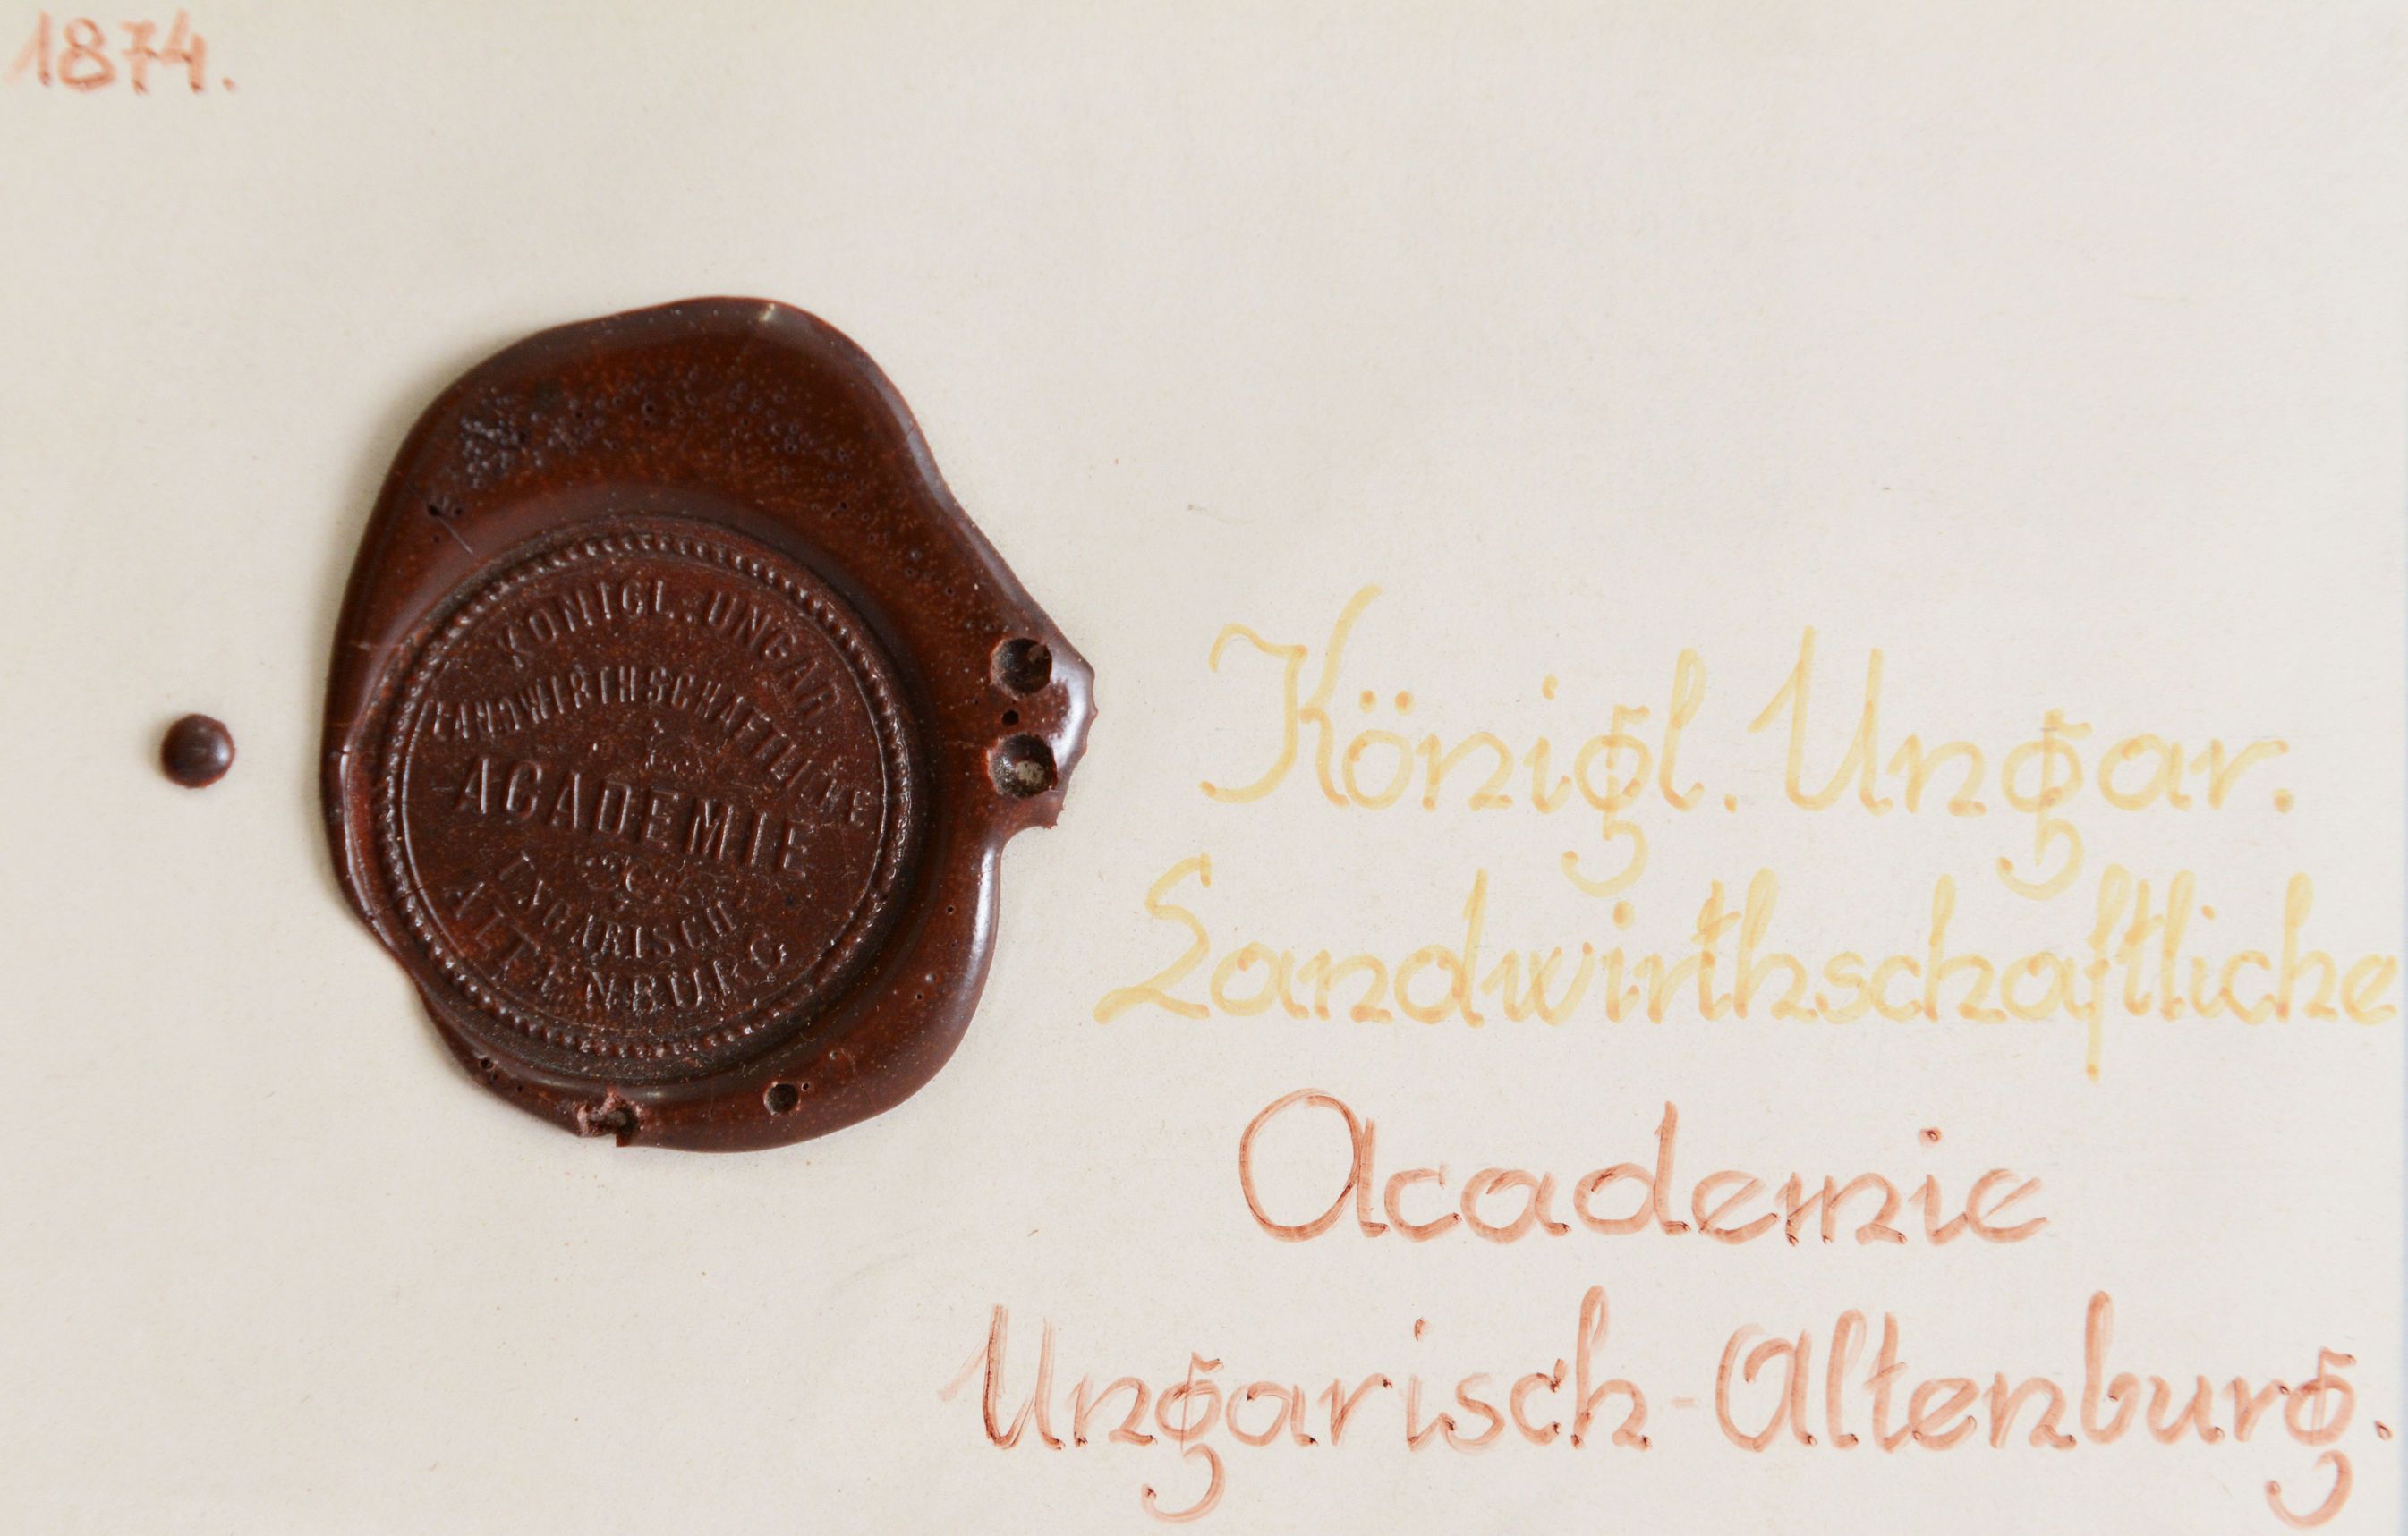 1874.
KÖNIGL. UNGAR.
LANDWIRTHSCHAFTLICHE
ACADEMIE
UNGARISCH
ALTENBURG
Königl. Ungar.
Landwirthschaftliche
Academie
Ungarisch-Altenburg.